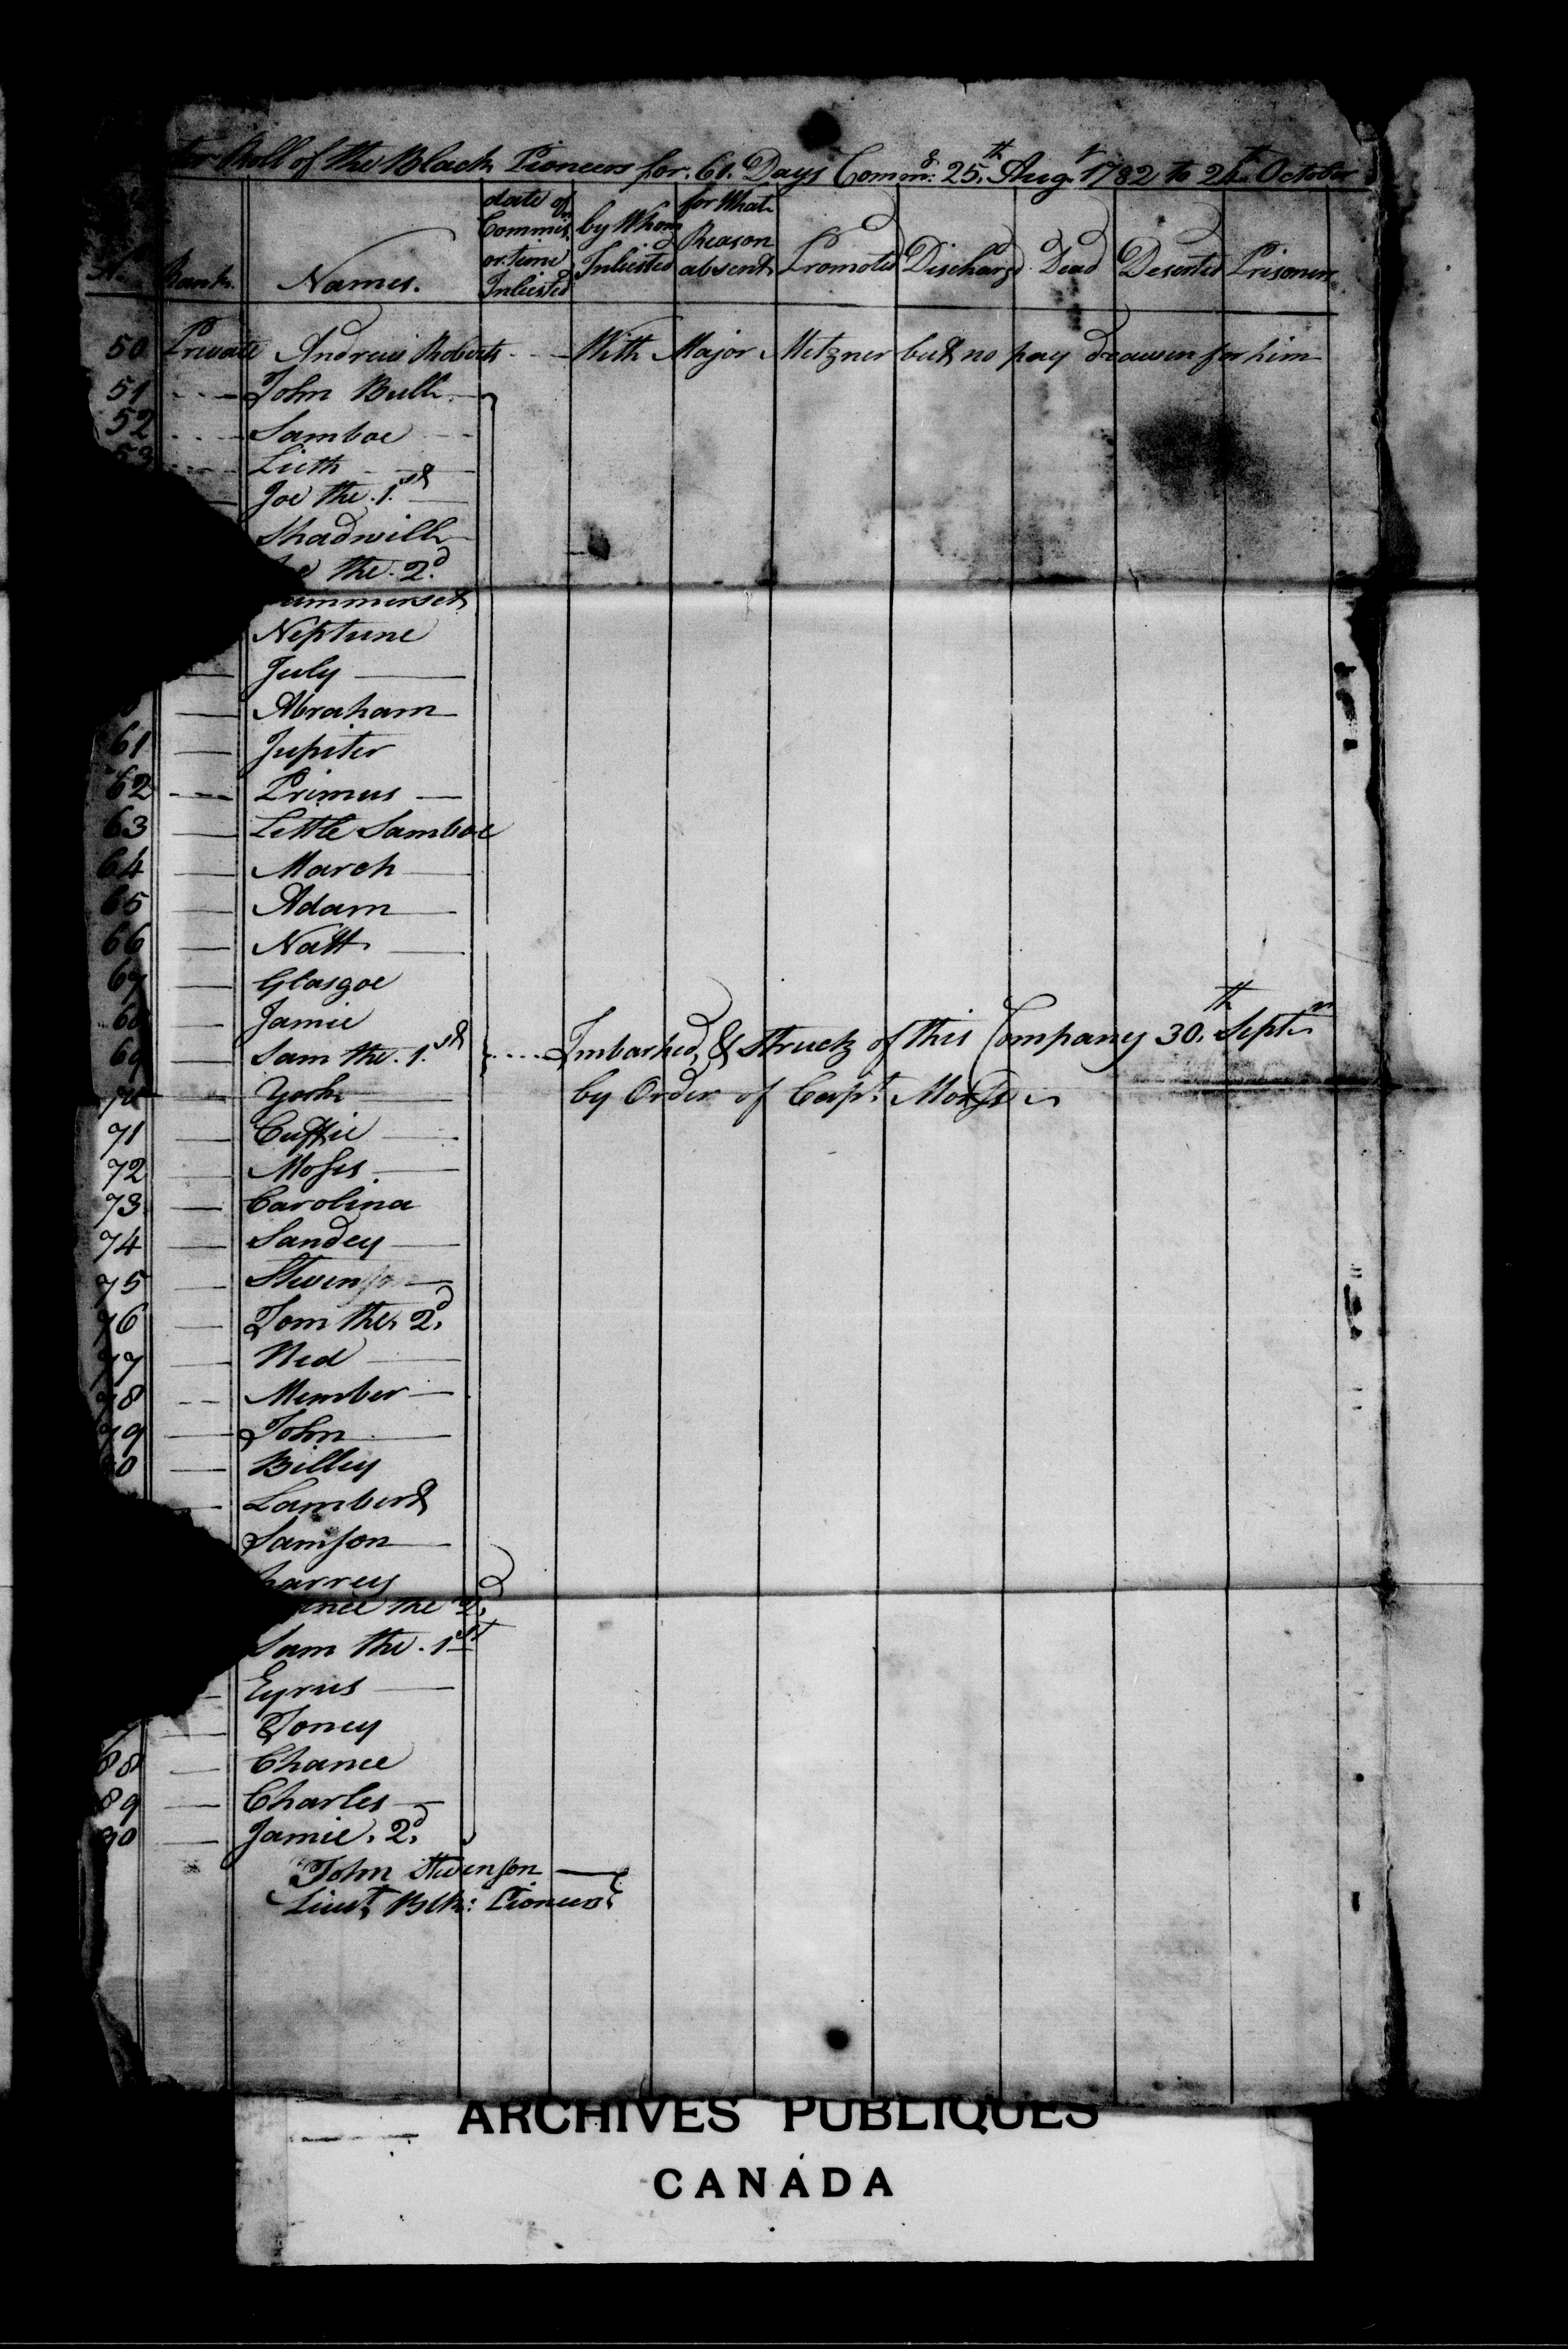 ter Roll of the Black Pioneers for. 61. Days Commg: 25.th Augt 1782 to 24th October
No Rank. Names. date of Commisn or time Inlisted by Whom Inlisted for What Reason absent Promoted Dischargd Dead Deserted Prisoners
50 Private Andrew Roberts - - - With Major Metzner but no pay drawen for him
51 John Bull
52 Samboe
53 Lieth
Joe the .1.st
Shadwill
the. 2.d
ummerset
Neptune
July
Abraham
61 Jupiter
62 Primus
63 Little Samboe
64 March
65 Adam
66 Natt
67 Glasgoe
68 Jamie
69 Sam the .1.st .... Imbarked, & Struck of this Company 30.th Septr
70 York by Order of Capt.
71 Cuffie
72 Moses
73 Carolina
74 Sandey
75 Stevenson
76 Tom the 2.d
77 Ned
78 Member
79 John
80 Billey
Lambert
Samson
harrey
ince the 2.d
Sam the .1st
Cyrus
Toney
88 Chance
89 Charles
90 Jamie. 2.d
John Stevenson
Lieut. Blk: Pioneers
ARCHIVES PUBLIQUES
CANADA